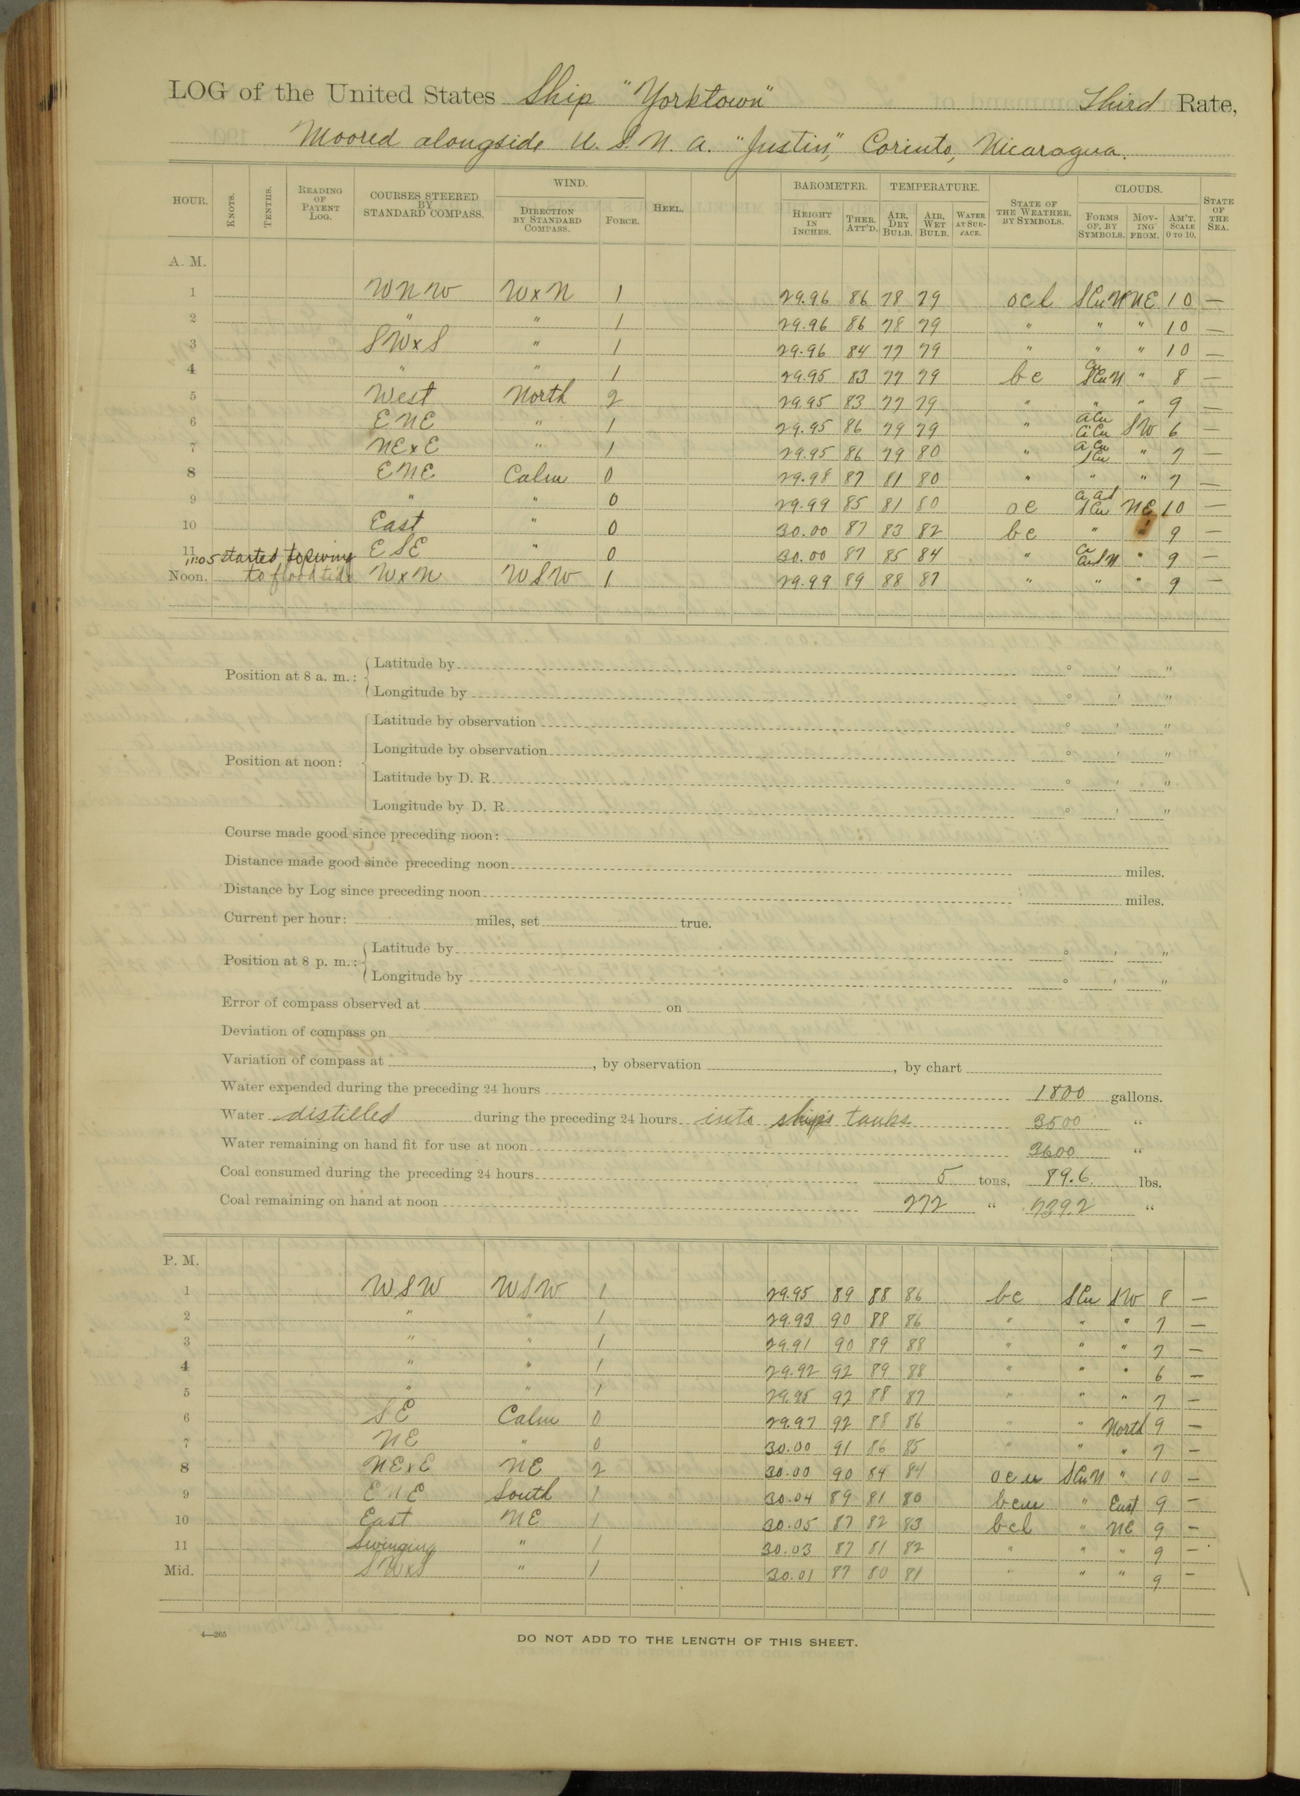 LOG of the United States Ship "Yorktown" Third Rate,
Moored alongside U. S. N. A. "Justin," Corinto, Nicaragua.
HOUR. KNOTS. TENTHS. READING OF PATENT LOG. COURSES STEERED BY STANDARD COMPASS. WIND. DIRECTION BY STANDARD COMPASS. FORCE. HEEL. BAROMETER. HEIGHT IN INCHES. THER. ATT'D. TEMPERATURE. AIR, DRY BULB. AIR, WET BULB. WATER AT SURFACE. STATE OF THE WEATHER, BY SYMBOLS. CLOUDS. FORMS OF, BY SYMBOLS. MOVING FROM. AM'T. SCALE 0 TO 10. STATE OF THE SEA.
A. M.
1 WNW WxN 1 29.96 86 78 79 ocl SCuN NE 10 —
2 " " 1 29.96 86 78 79 " " " 10 —
3 SWxS " 1 29.96 84 77 79 " " " 10 —
4 " " 1 29.95 83 77 79 bc SCuN " 8 —
5 West North 2 29.95 83 77 79 " " " 9 —
6 ENE " 1 29.95 86 79 79 " ACu CiCu SW 6 —
7 NExE " 1 29.95 86 79 80 " ACu SCu " 7 —
8 ENE Calm 0 29.98 87 81 80 " " " 7 —
9 " " 0 29.99 85 81 80 oc SCu NE 10 —
10 East " 0 30.00 87 83 82 bc " " 9 —
11 ESE " 0 30.00 87 85 84 " " 9 —
11:05 started to swing
Noon. to flood tide WxN WSW 1 29.99 89 88 87 " " " 9 —
Position at 8 a. m.: Latitude by ° ' "
Longitude by ° ' "
Position at noon: Latitude by observation ° ' "
Longitude by observation ° ' "
Latitude by D. R. ° ' "
Longitude by D. R. ° ' "
Course made good since preceding noon:
Distance made good since preceding noon miles.
Distance by Log since preceding noon miles.
Current per hour: miles, set true.
Position at 8 p. m.: Latitude by ° ' "
Longitude by ° ' "
Error of compass observed at on
Deviation of compass on
Variation of compass at , by observation , by chart
Water expended during the preceding 24 hours 1800 gallons.
Water distilled during the preceding 24 hours into ship's tanks 3500 "
Water remaining on hand fit for use at noon 3600 "
Coal consumed during the preceding 24 hours 5 tons, 896 lbs.
Coal remaining on hand at noon 272 " 739.2 "
P. M.
1 WSW WSW 1 29.95 89 88 86 bc SCu SW 8 —
2 " " 1 29.93 90 88 86 " " " 7 —
3 " " 1 29.91 90 89 88 " " " 7 —
4 " " 1 29.92 92 89 88 " " " 6 —
5 " " 1 29.95 92 88 87 " " " 7 —
6 SE Calm 0 29.97 92 88 86 " " North 9 —
7 NE " 0 30.00 91 86 85 " " " 7 —
8 NExE NE 2 30.00 90 84 84 ocu SCuN " 10 —
9 ENE South 1 30.04 89 81 80 bcu " East 9 —
10 East NE 1 30.05 87 82 83 bcl " NE 9 —
11 Swinging " 1 30.03 87 81 82 " " " 9 —
Mid. SWxS " 1 30.01 87 80 81 " " " 9 —
4—265
DO NOT ADD TO THE LENGTH OF THIS SHEET.